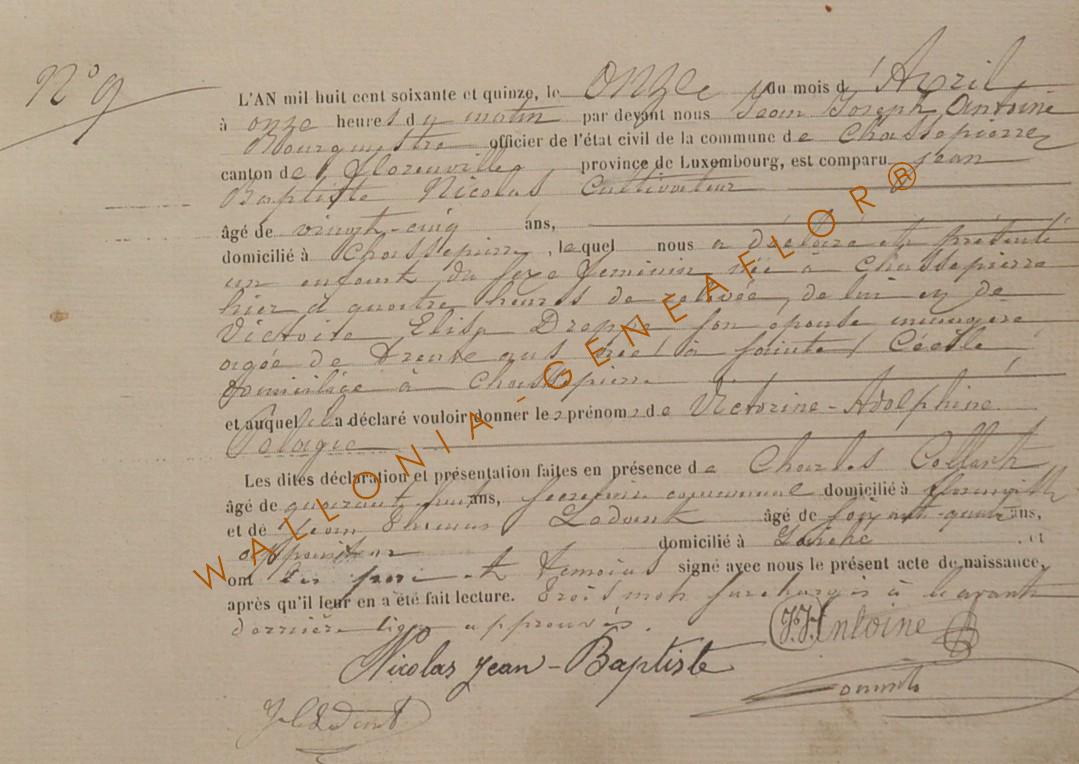 N° 9
L'AN mil huit cent soixante et quinze, le onze du mois d'Avril
à onze heures du matin par devant nous Jean Joseph Antoine
Bourgmestre officier de l'état civil de la commune de Chassepierre
canton de florenville province de Luxembourg, est comparu jean
Baptiste Nicolas Cultivateur
âgé de vingt-cinq ans,
domicilié à Chassepierre, lequel nous a déclaré et présenté
un enfant du sexe feminin née à Chassepierre
hier à quatre heures de relevée, de lui et de
Victoire Elise son épouse menagere
agée de trente ans née à sainte Cécile
domiciliée à Chassepierre
et auquel il a déclaré vouloir donner les prénoms de Victorine-Adolphine
Pelagie
Les dites déclaration et présentation faites en présence de Charles Collart
âgé de quarante huit ans, secretaire communal domicilié à florenville
et de Ledent âgé de ans,
domicilié à et
ont les pere et temoins signé avec nous le présent acte de naissance,
après qu'il leur en a été fait lecture. Trois mots surchargés à l'avant
dernière ligne approuvés.
J.J. Antoine
Nicolas jean-Baptiste
WALLONIA-GENEAFLOR®